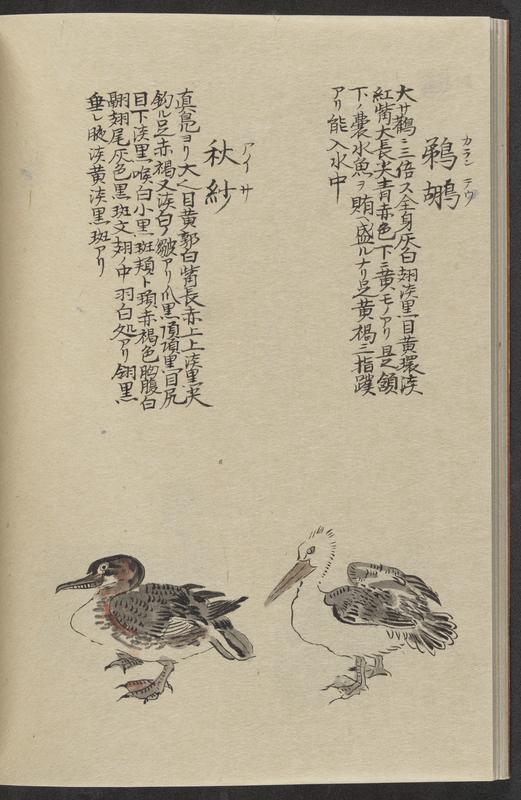 カランテウ
鵜鶘
大サ鸛ニ三倍ス全身灰白翅淡黒目黄環淡
紅觜大長尖青赤色下ニ黄モノアリ是頷
下ノ嚢水魚ヲ賄ヘ盛ルナリ足黄褐三指蹼
アリ能入水中
アイサ
秋紗
真鳧ヨリ大也目黄郭白觜長赤上上淡黒尖
釣ル足赤褐又淡白ノ皺アリ爪黒頂項黒目尻
目下淡黒喉白小黒斑頬ト頚赤褐色胸腹白
翮翅尾灰色黒斑文翅ノ中羽白処アリ翎黒
垂レ腋淡黄淡黒斑アリ